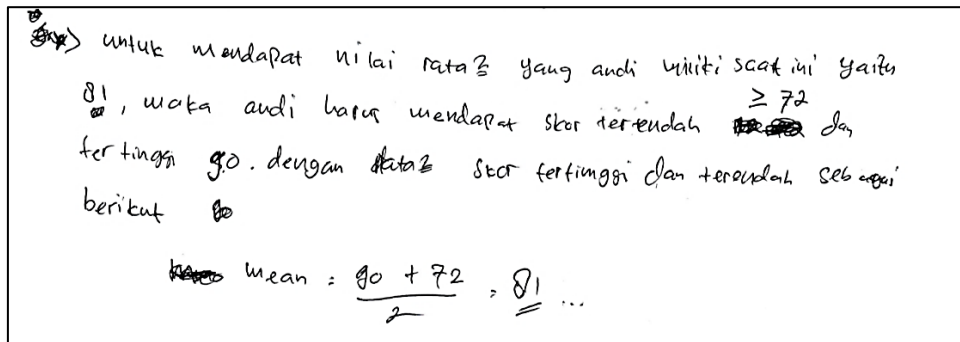 untuk mendapat nilai rata2 yang andi miliki saat ini yaitu
81, maka andi harus mendapat skor terendah ≥ 72 dan
tertinggi 90. dengan rata2 skor tertinggi dan terendah sebagai
berikut
mean = 90 + 72 / 2 = 81 ...